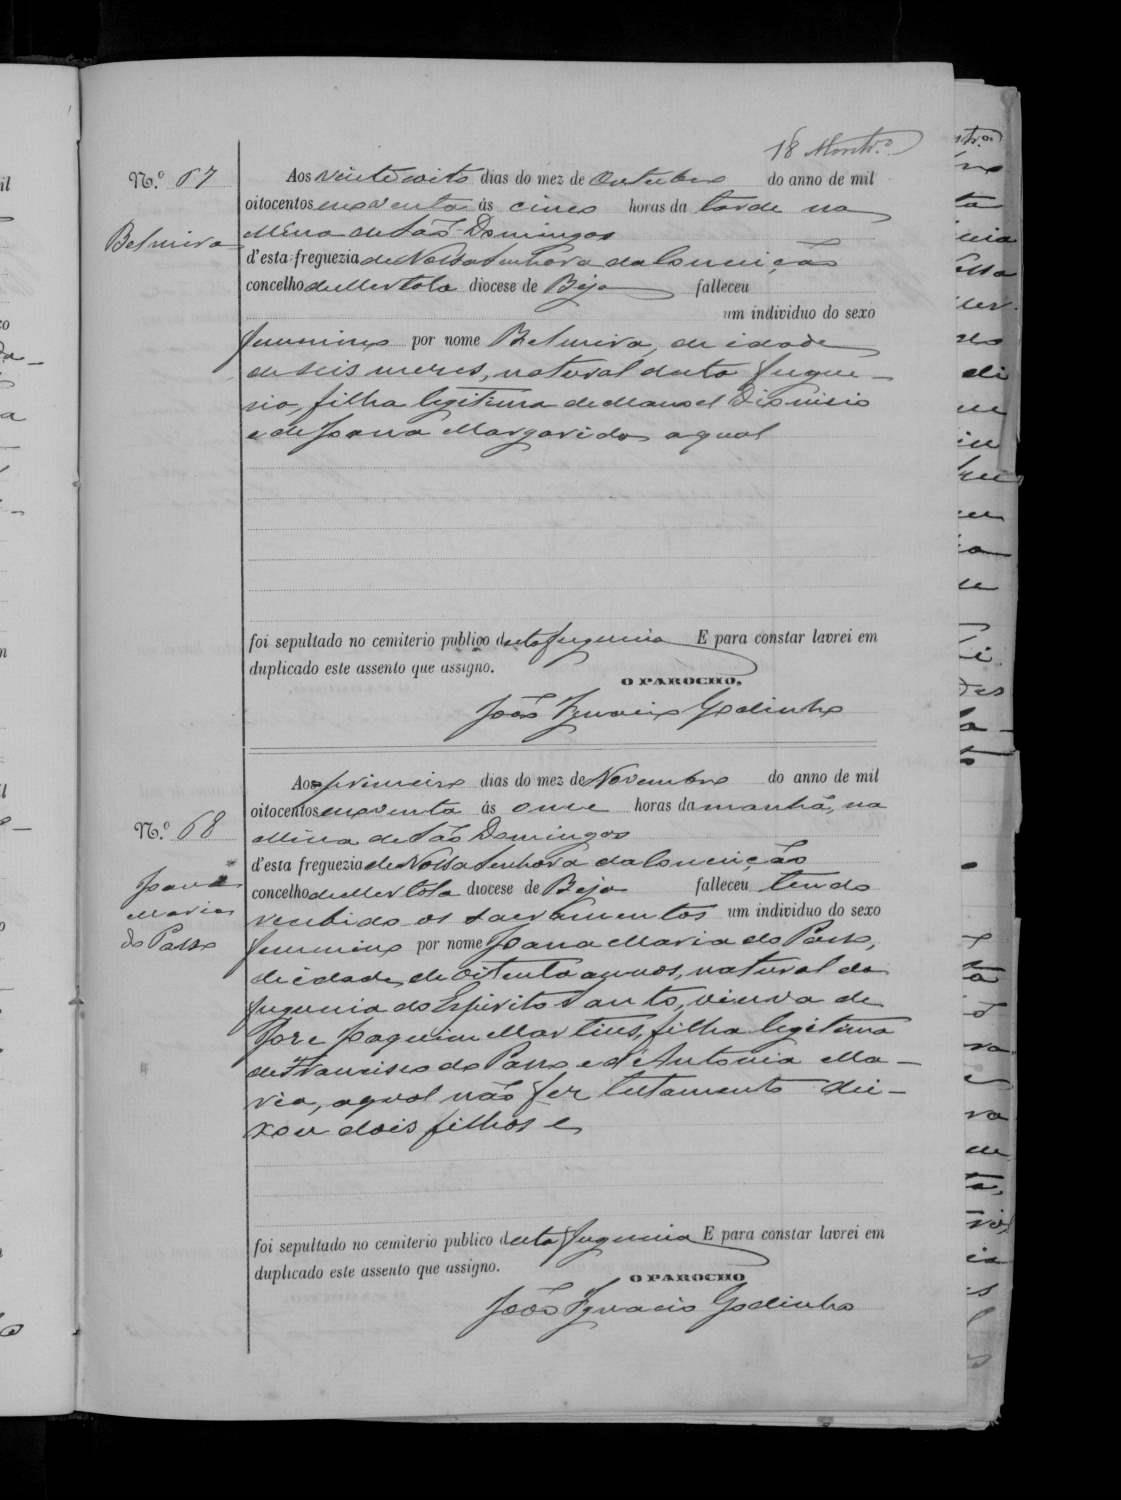 18 Montr.º
N.º 67
Belmira
Aos vinte oito dias do mez de Outubro do anno de mil
oitocentos noventa ás cinco horas da tarde na
Mina de São Domingos
d'esta freguezia de Nossa Senhora da Conceição
concelho de Mertola diocese de Beja falleceu
um individuo do sexo
feminino por nome Belmira, de idade
de seis meses, natural desta fregue-
sia, filha legitima de Manoel Dionisio
e de Joana Margarida a qual
foi sepultado no cemiterio publico desta freguesia E para constar lavrei em
duplicado este assento que assigno.
O PAROCHO,
João Ignacio Godinho
N.º 68
Joana
Maria
do Passo
Aos primeiro dias do mez de Novembro do anno de mil
oitocentos noventa ás onze horas da manhã, na
Mina de São Domingos
d'esta freguezia de Nossa Senhora da Conceição
concelho de Mertola diocese de Beja falleceu tendo
recebido os sacramentos um individuo do sexo
feminino por nome Joana Maria do Passo,
de idade de oitenta annos, natural da
freguesia do Espirito Santo, viuva de
José Joaquim Martins, filha legitima
de Francisco do Passo e d'Antonia Ma-
ria, a qual não fez testamento dei-
xou dois filhos e
foi sepultado no cemiterio publico desta freguesia E para constar lavrei em
duplicado este assento que assigno.
O PAROCHO
João Ignacio Godinho